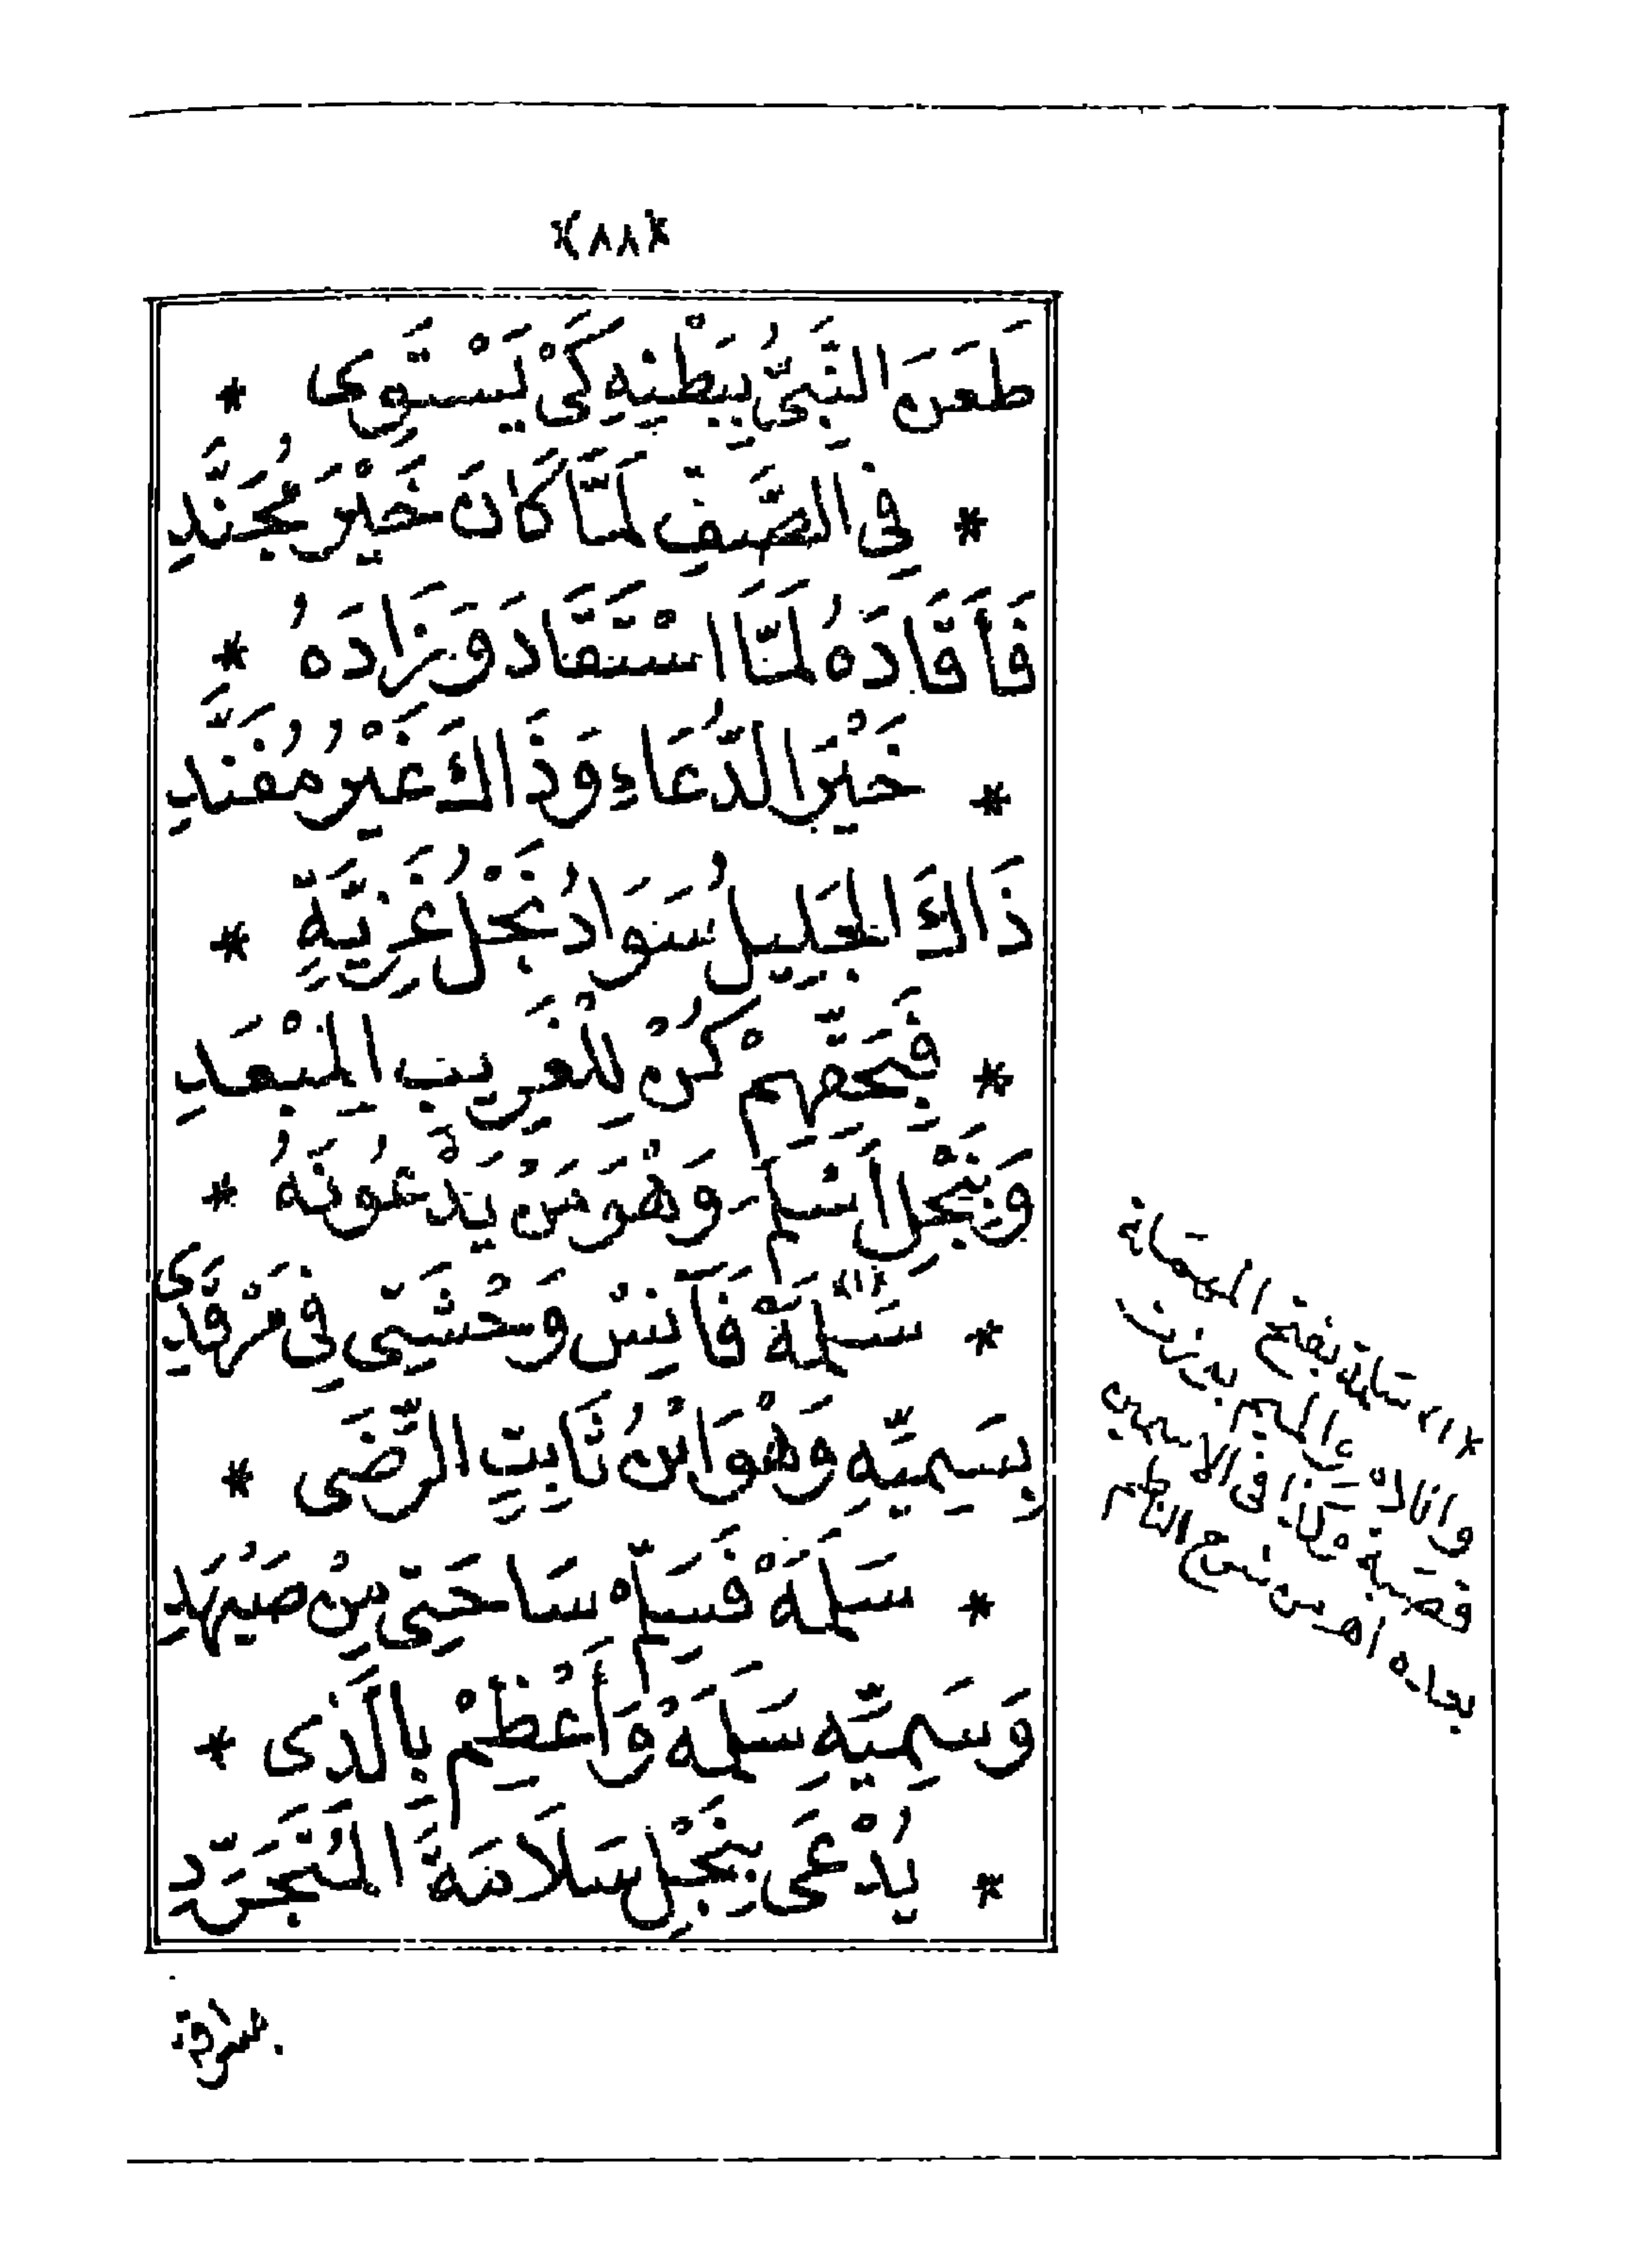 *(٨٨)*
طَعَنَ النَّبِيُّ بِبَطْنِهِ كَىْ يَسْتَوِى *
* فِى الصَّفِّ لَمَّا كَانَ خَيْرَ مُجَنَّدِ
فَأَقَادَهُ لَمَّا اسْتَقَادَ وَزَادَهُ *
* خَيْرَ الدُّعَاءِ وَذَاكَ غَيْرُ مُفَنَّدِ
ذَاكَ الجَلِيلُ سَوَادُ نَجْلُ غَزِيَّةٍ *
* فَبِحَقِّهِمْ كُنْ لِلْغَرِيبِ المُبْعَدِ
وَبِنَجْلِ اَسْلَمَ وَهْوَ مَنْ يَدْعُونَهُ *
* سَلَمَةْ (١) فَآنِسْ وَحْشَتِى فِى مَرْقَدِى
بِسَمِيِّهِ وَهْوَ ابْنُ ثَابِتٍ الرِّضَى *
* سَلَمَةْ فَسَلِّمْ سَاحَتِى مِنْ صَيْهَدِ
وَسَمِيِّهِ سَلَمَةْ وَأَعْظِمْ بِالَّذِى *
* يُدْعَى بِنَجْلِ سَلَامَةَ المُتَجَرِّدِ
*(١) سَلمة بفتح المهملة
واللام والميم بوزن
قصَبة هكذا فى الاسمين
بعده اهـ من شرح الناظم